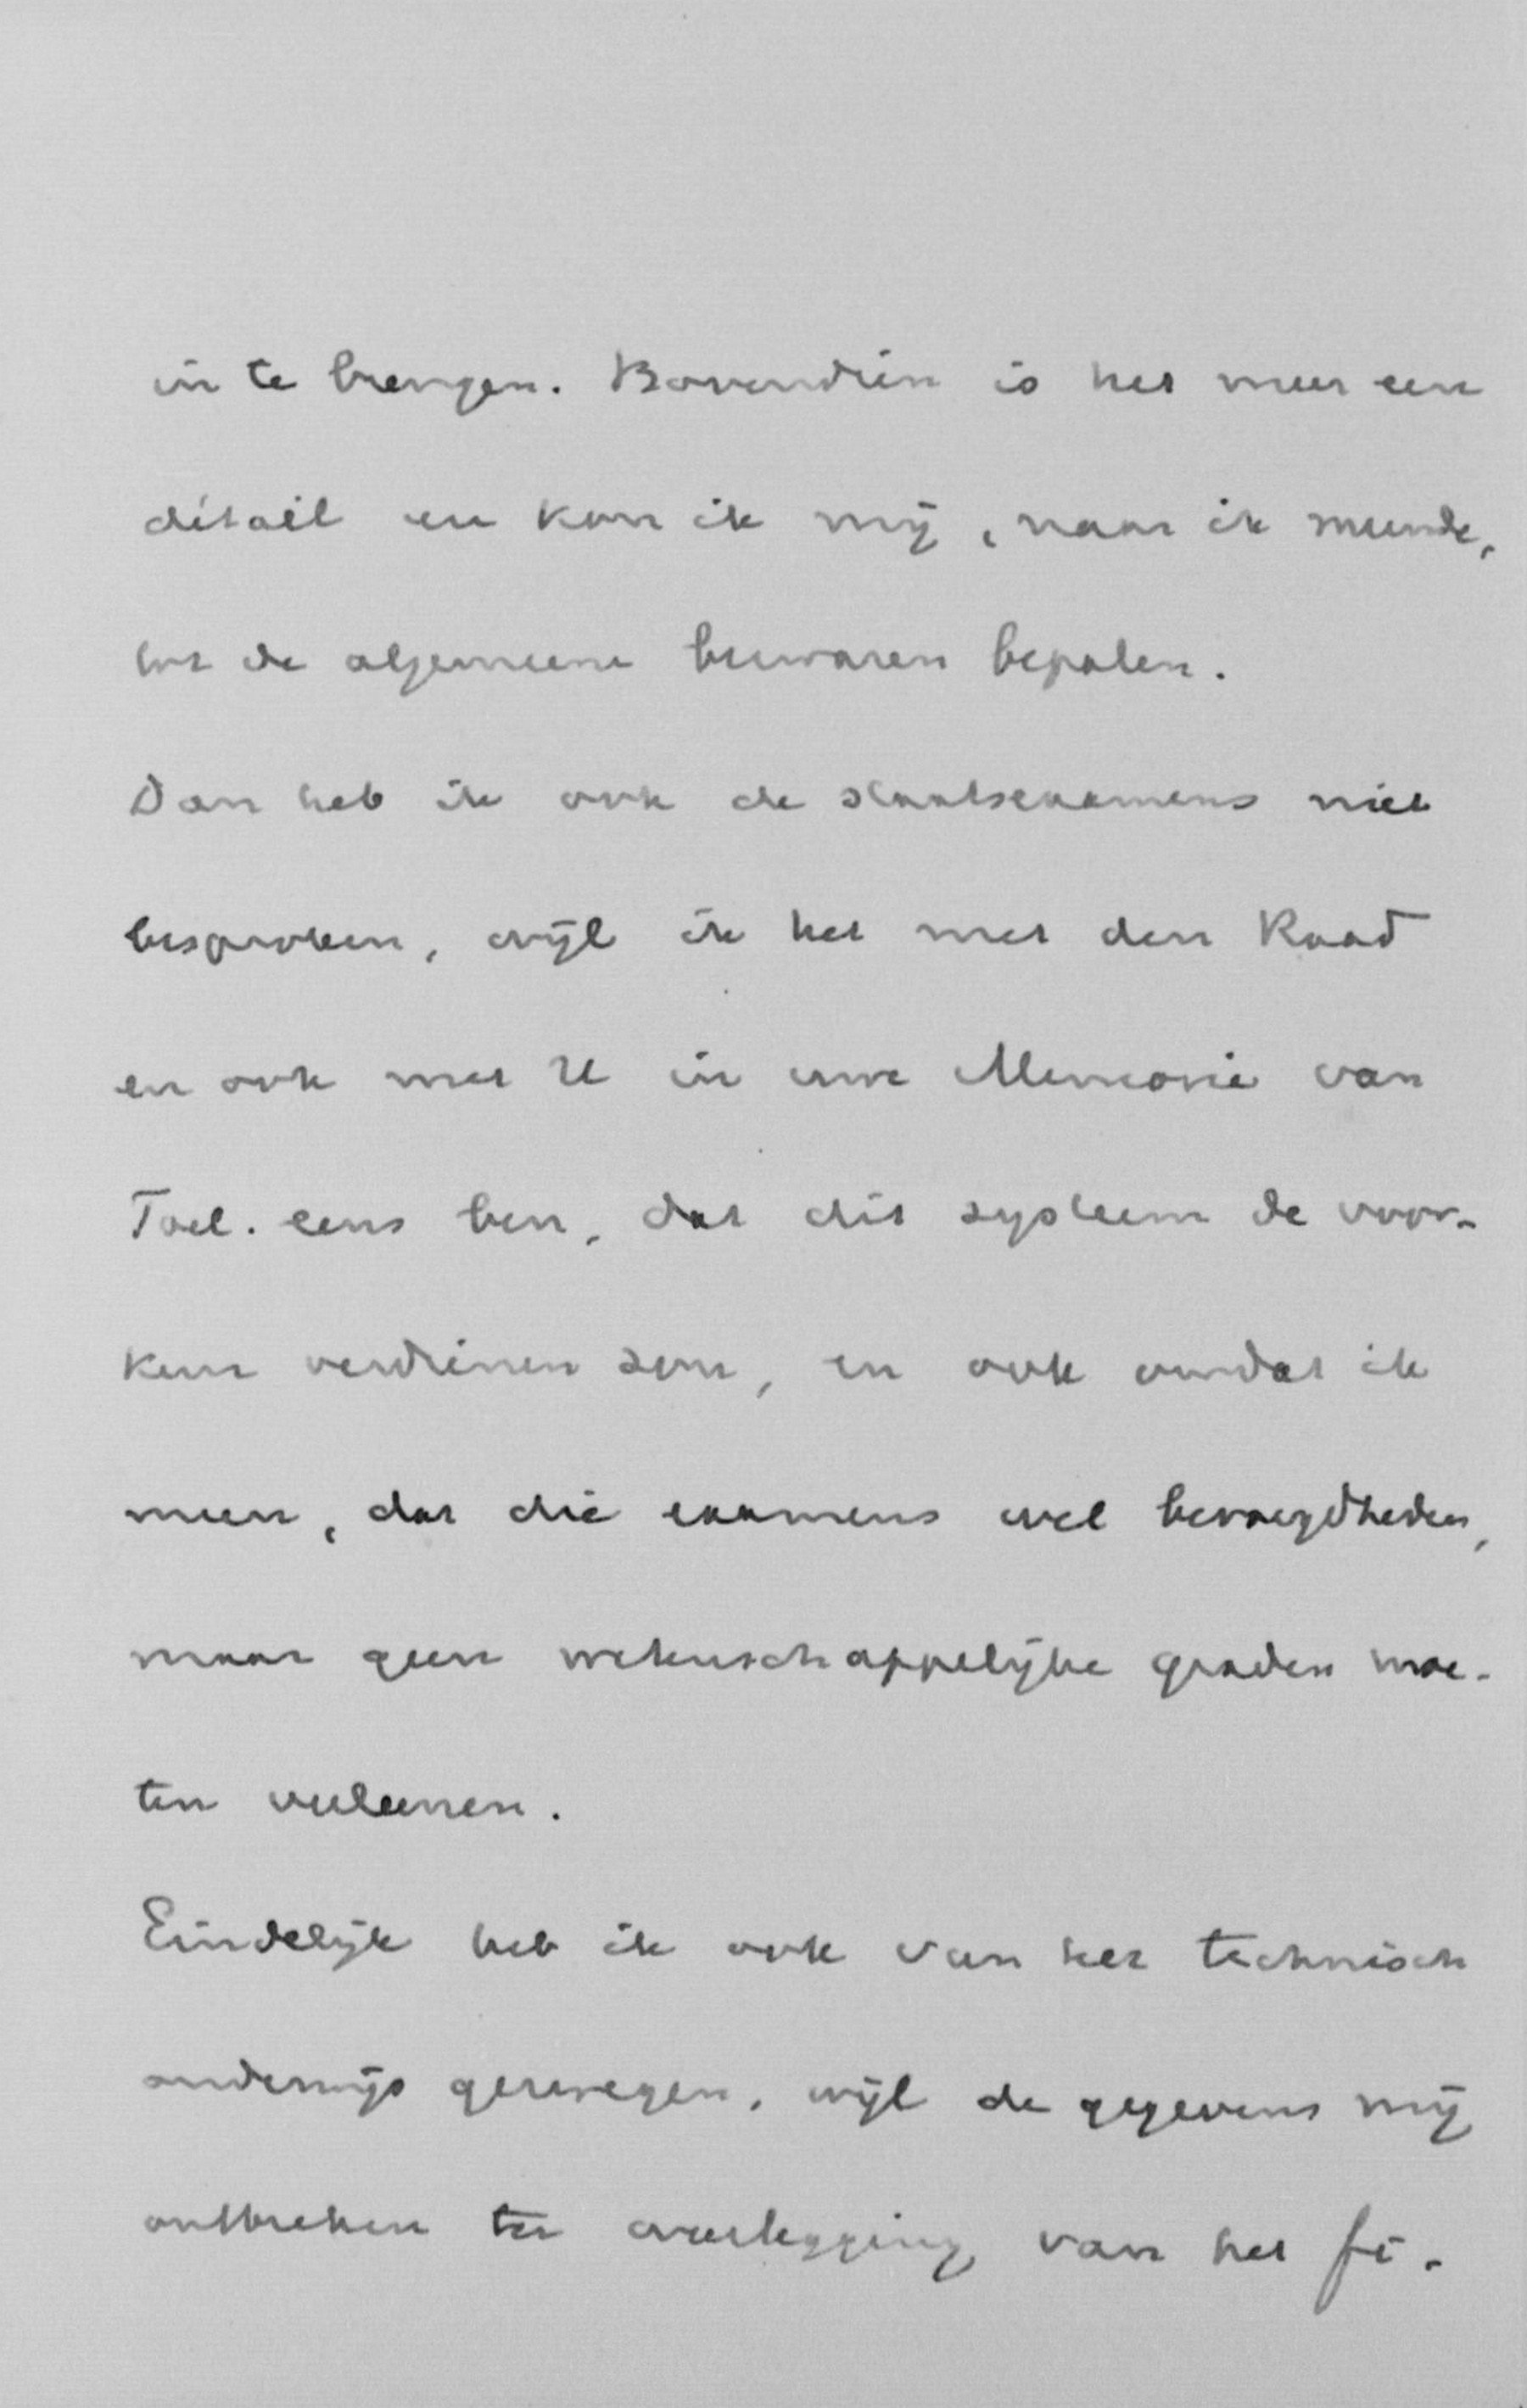 in te brengen. Bovendien is het meer een
détail en kon ik mij, naar ik meende,
tot de algemeene bezwaren bepalen.
Dan heb ik ook de staatsexamens niet
besproken, wijl ik het met den Raad
en ook met U in uwe Memorie van
Toel. eens ben, dat dit systeem de voor-
keur verdienen zou, en ook omdat ik
meen, dat die examens wel bevoegdheden,
maar geen wetenschappelijke graden moe-
ten verleenen.
Eindelijk heb ik ook van het technisch
onderwijs gezwegen, wijl de gegevens mij
ontbreken ter overlegging van het fi-